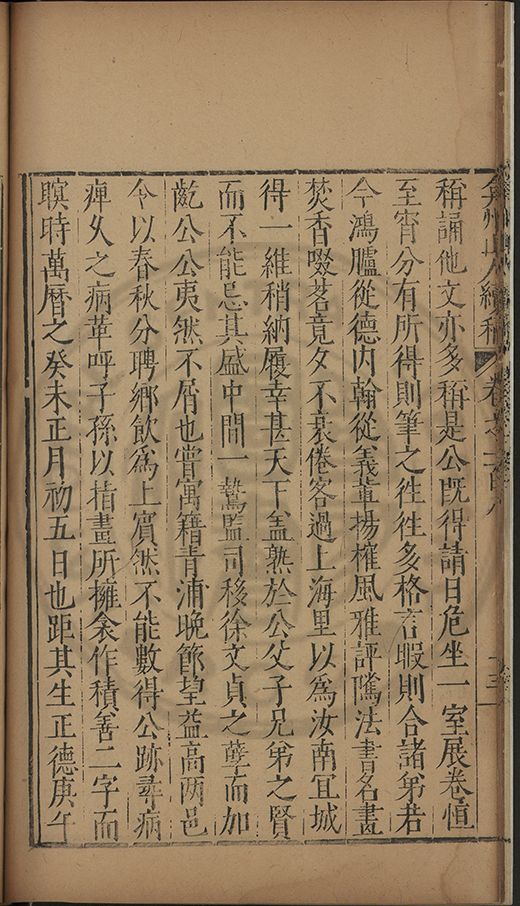 弇州山人續稿 卷之一百八 十三
稱誦他文亦多稱是公既得請日危坐一室展卷恒
至宵分有所得則筆之徃徃多格言暇則合諸弟若
今鴻臚從德内翰從義輩揚榷風雅評隲法書名畫
焚香啜茗竟夕不衰倦客過上海里以為汝南冝城
得一維稍納履幸甚天下盖熟於公父子兄弟之賢
而不能忌其盛中間一鷙監司移徐文貞之孽而加
齕公公夷然不屑也嘗寓籍青浦晚節望益高两邑
令以春秋分聘鄉飲為上賓然不能數得公跡尋病
痺乆之病革呼子孫以指畫所擁衾作積善二字而
瞑時萬曆之癸未正月初五日也距其生正德庚午